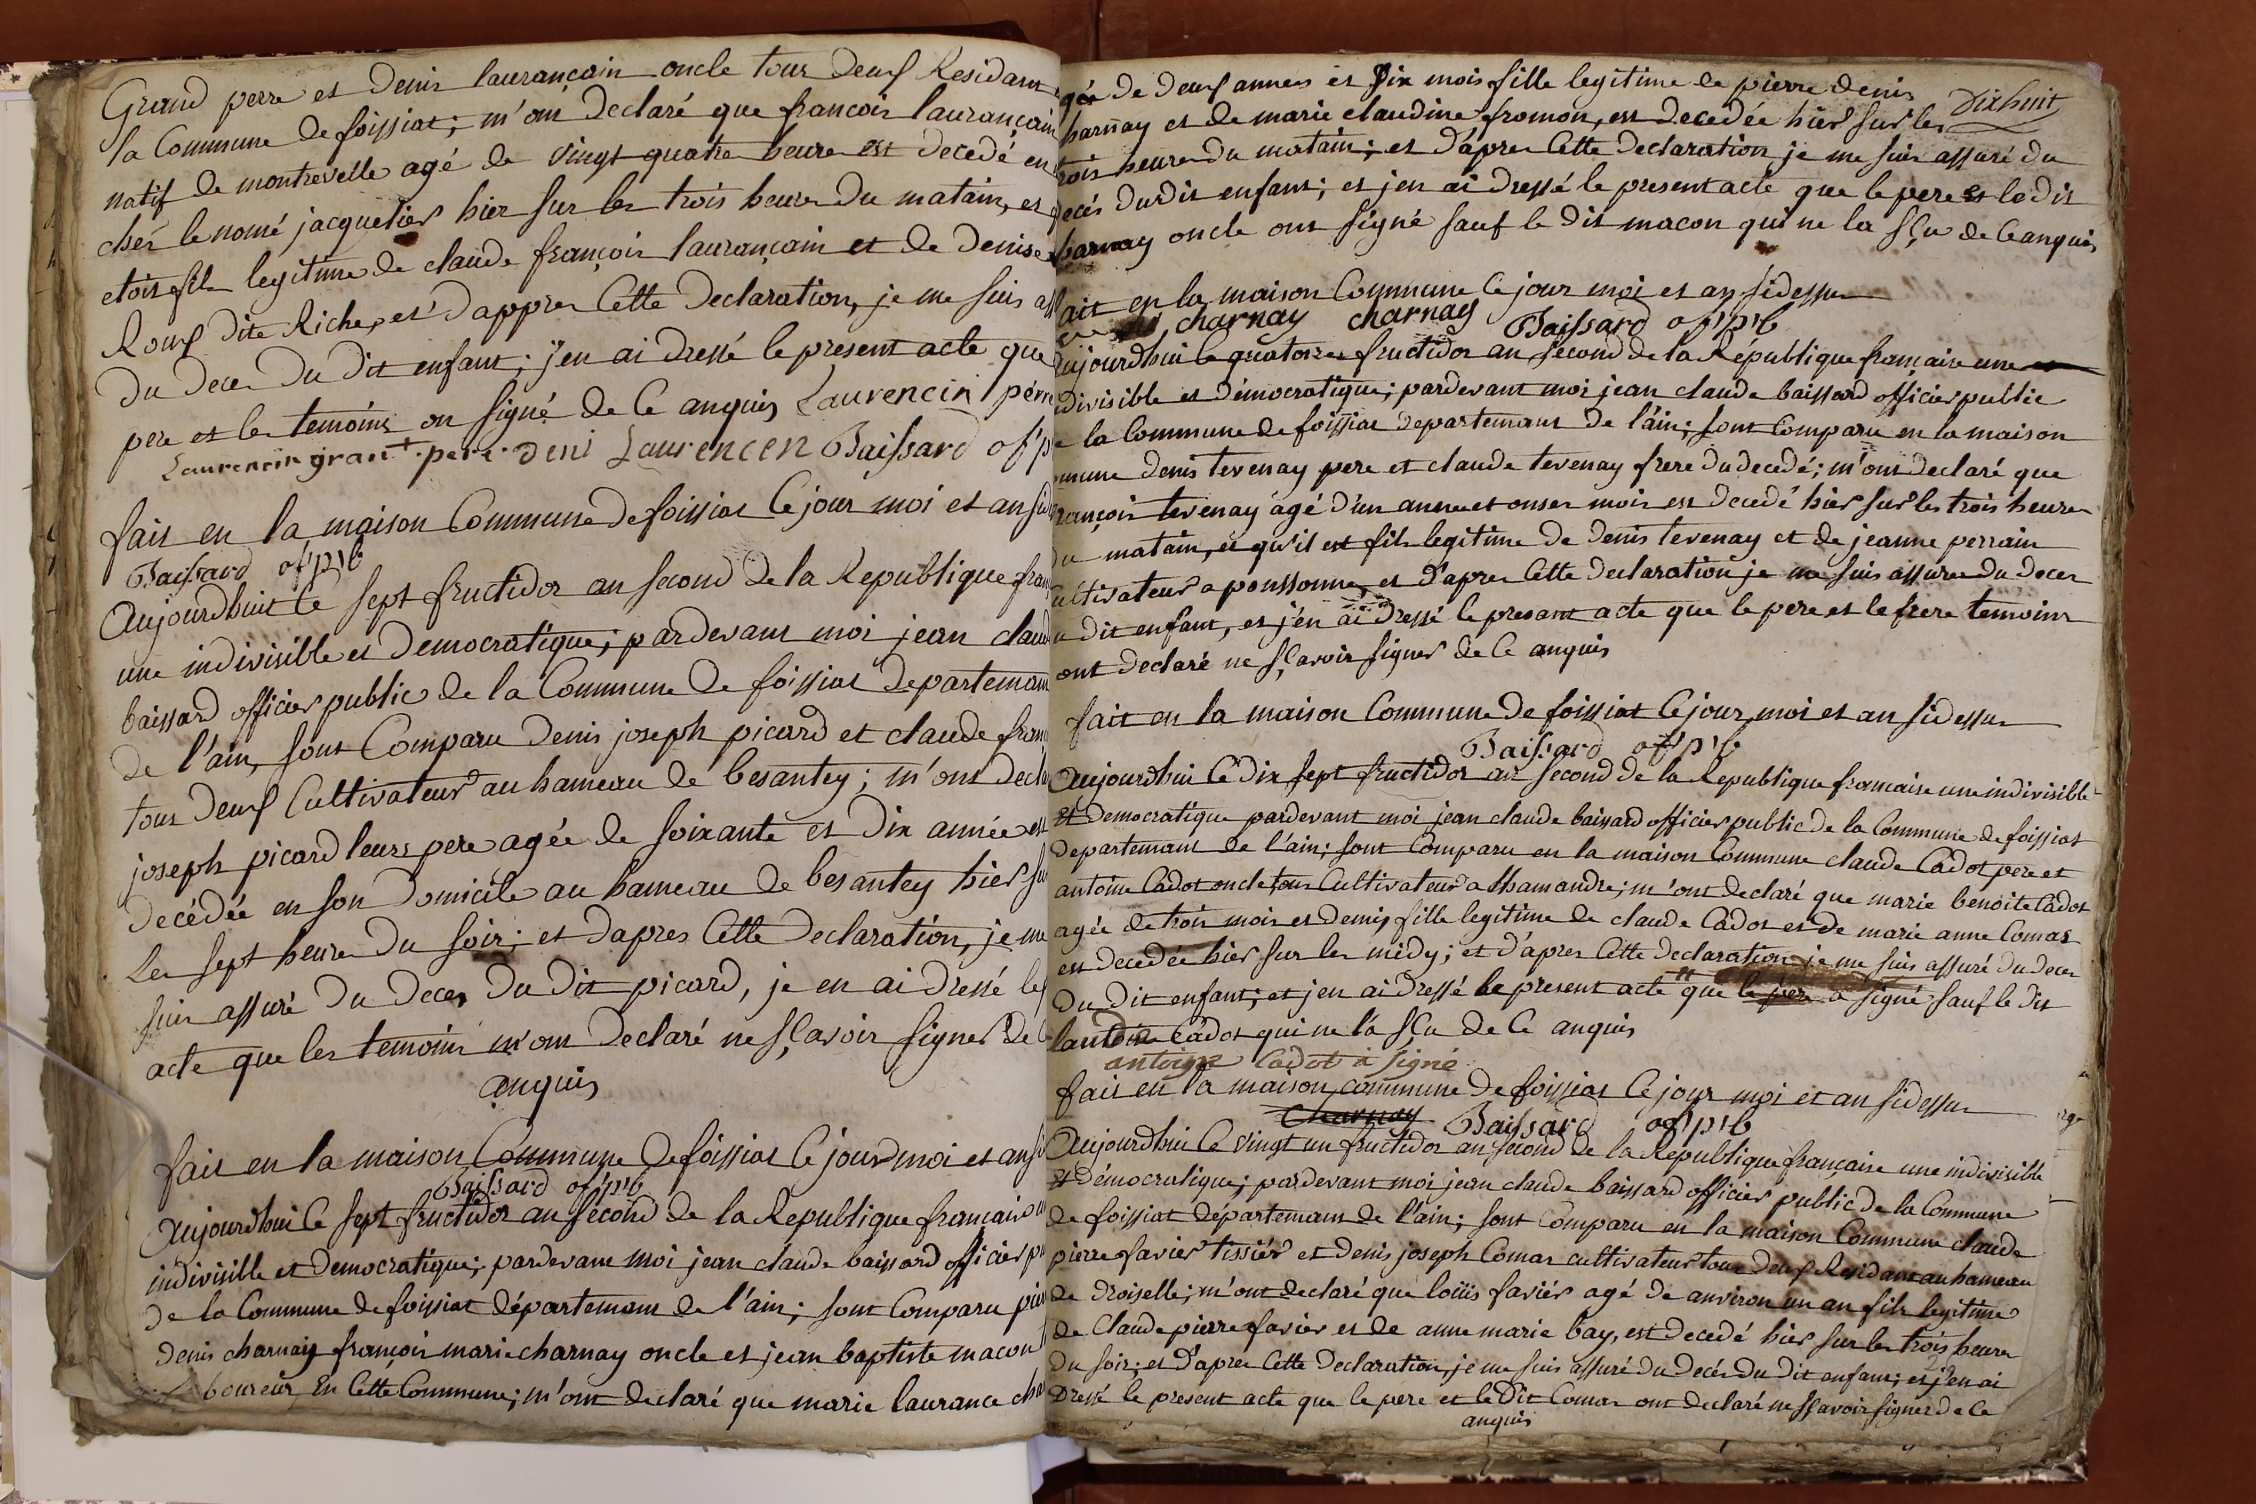 Grand perre et Denis laurançain oncle tous deux Residant
la Commune de foissiat; m'ont declaré que francois laurançain
natif de montrevelle agé de vingt quatre heure est decedé en
chés le nomé jacquetier hier sur les trois heure du matain, et
etoit fils legitime de claude françois laurançain et de denise
Roux dite Riche, et d'appres Cette declaration, je me suis ass
du deces du dit enfant; j'en ai dressé le present acte que
pere et les temoins on signé de Ce anquis Laurencin pere
Laurencin grant pere deni Laurencen Baissard of'p
fait en la maison Commune de foissiat Ce jour moi et an sid
Baissard of'p'b
Aujourdhuit Ce sept fructidor an second de la Republique fran
une indivisible et democratique; pardevant moi jean claud
baissard officier public de la Commune de foissiat departemant
de l'ain, sont Comparu denis joseph picard et claude from
tous deux Cultivateur au hameau de besantey; m'ont decla
joseph picard leurs pere agée de soixante et dix année est
decédée en son domicile au hameau de besantey hier su
les sept heure du soir; et dapres Cette declaration, je me
suis assuré du deces du dit picard, je en ai dressé le p
acte que les temoins m'ont declaré ne sçavoir signer de C
anquis
fait en la maison Commune de foissiat Ce jour moi et an si
Baissard of'p'b
Aujourdhui Ce sept fructidor an second de la Republique francaise u
indivisible et democratique; pardevant moi jean claude baissard officier pu
de la Commune de foissiat département de l'ain; sont Comparu pier
denis charnay françois marie charnay oncle et jean baptiste macon
laboureur En Cette Commune; m'ont declaré que marie laurance cha
Dixhuit
gée de deux annees et six mois fille legitime de pierre denis
harnay et de marie claudine fromon, est decedée hier sur les
trois heure du matain; et d'apres Cette declaration je me suis assuré du
decés dudit enfant; et j'en ai dressé le present acte que le pere et le dit
harnay oncle ont signé sauf le dit macon qui ne la sçu de Ce anquis
fait en la maison Commune Ce jour moi et an sidessu
charnay charnay Baissard of'p'b
Aujourdhui le quatorze fructidor an second de la République française une
ndivisible et démocratique; pardevant moi jean claude baissard officier public
de la Commune de foissiat departemant de l'ain; sont Comparu en la maison
mmune denis tevenay pere et claude tevenay frere du decedé; m'ont declaré que
rançois tevenay agé d'un annee et onses mois est decedé hier sur les trois heure
du matain, et qu'il est fils legitime de denis tevenay et de jeanne perrain
ultivateur a poussonne, et d'apres Cette declaration je me suis assuree du deces
u dit enfant, et j'en ai dressé le presant acte que le pere et le frere temoins
ont declaré ne sçavoir signer de Ce anquis
fait en la maison Commune de foissiat Ce jour moi et an sidessu
Baissard of'p'b
Aujourdhui Ce dix sept fructidor an second de la Republique francaise une indivisible
et democratique pardevant moi jean claude baissard officier public de la Commune de foissiat
departemant de l'ain; sont Comparu en la maison Commune claude Cadot pere et
antoine Cadot oncle tous Cultivateur a Chamandre; m'ont declaré que marie benoite Cadot
agée de trois mois et demis, fille legitime de claude Cadot et de marie anne Comas
est decedée hier sur les midy; et d'apres Cette declaration je me suis assuré du deces
du dit enfant; et j'en ai dressé le present acte que le pere a signé sauf le dit
lantoine Cadot qui ne l'a sçu de Ce anquis
antoine Cadot a signé
fait en la maison commune de foissiat Ce jour moi et an sidessu
Charnay Baissard of'p'b
Aujourdhui Ce vingt un fructidor an second de la Republique française une indivisible
et démocratique; pardevant moi jean claude baissard officier public de la Commune
de foissiat départemant de l'ain; sont Comparu en la maison Commune claude
pierre favier tissiér et denis joseph Comas cultivateur tous deux Residant au hameau
de droiselle; m'ont declaré que loüis favier agé de anviron un an fils legitime
de Claude pierre favier et de anne marie bay, est decedé hier sur les trois heure
du soir; et d'apres Cette declaration, je me suis assuré du decés du dit enfant; et j'en ai
Dressé le present acte que le pere et le Dit Comas ont declaré ne sçavoir signer de Ce
anquis